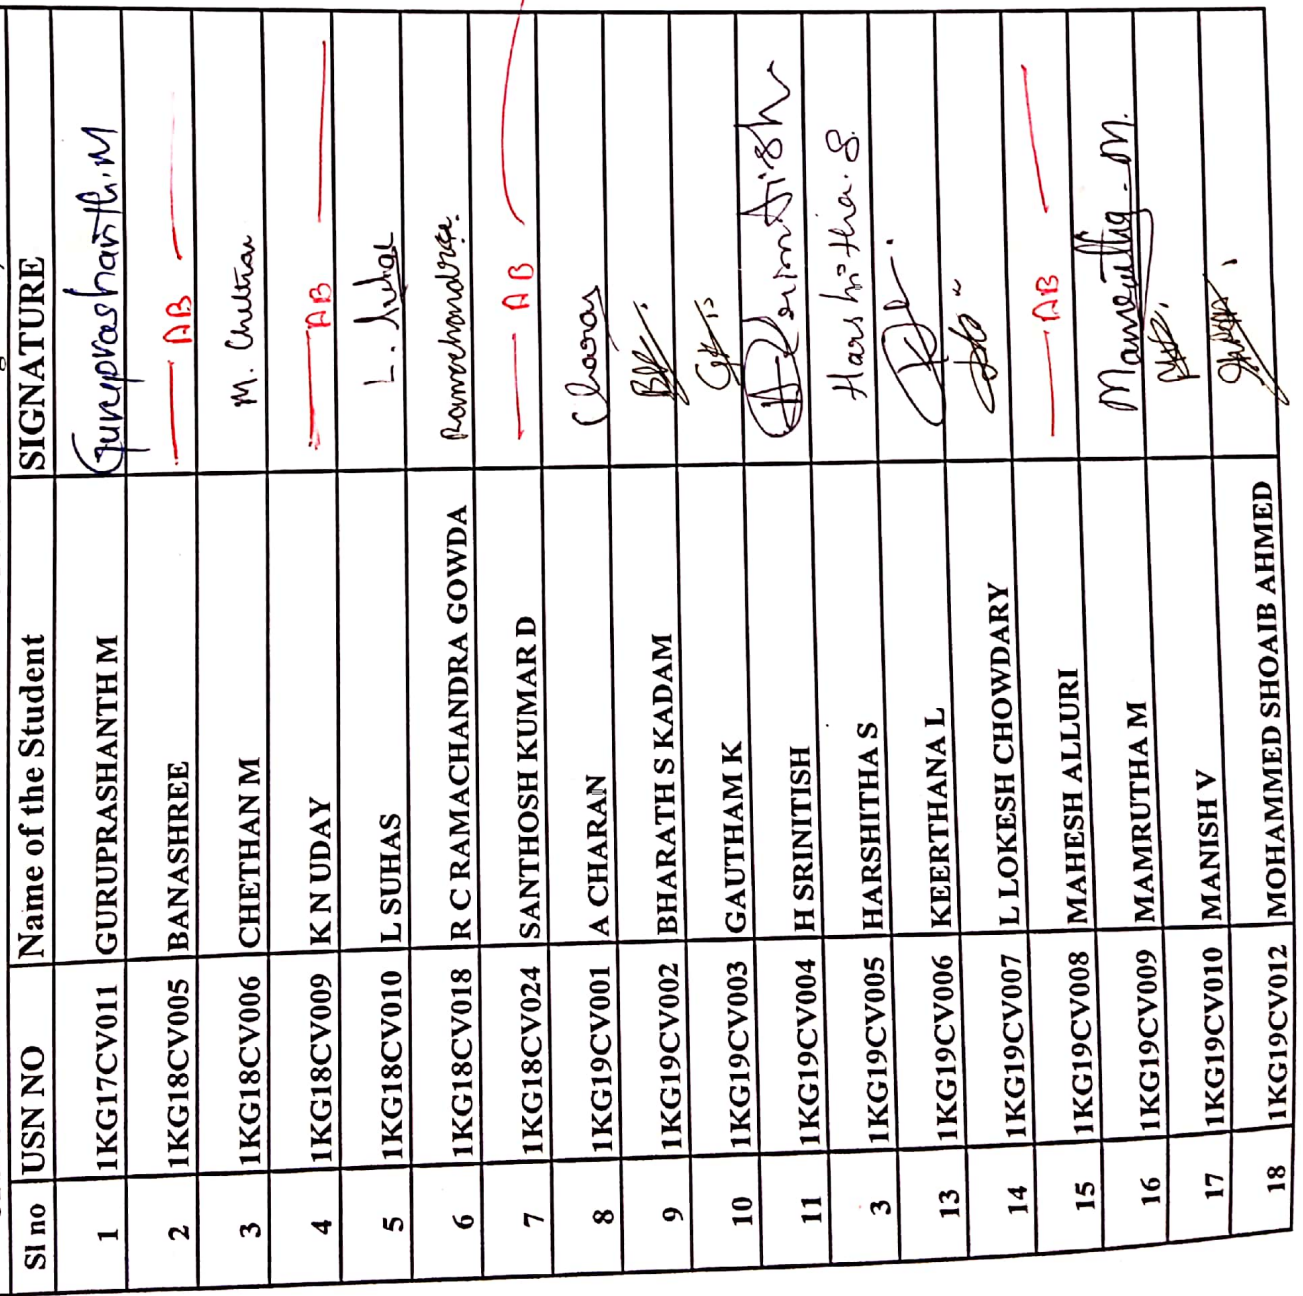 Sl no USN NO Name of the Student SIGNATURE
1 1KG17CV011 GURUPRASHANTH M Guruprashanth.M
2 1KG18CV005 BANASHREE AB
3 1KG18CV006 CHETHAN M M. Chethan
4 1KG18CV009 K N UDAY AB
5 1KG18CV010 L SUHAS L. Suhas
6 1KG18CV018 R C RAMACHANDRA GOWDA
7 1KG18CV024 SANTHOSH KUMAR D AB
8 1KG19CV001 A CHARAN Charan
9 1KG19CV002 BHARATH S KADAM
10 1KG19CV003 GAUTHAM K
11 1KG19CV004 H SRINITISH
3 1KG19CV005 HARSHITHA S Harshitha.S
13 1KG19CV006 KEERTHANA L
14 1KG19CV007 L LOKESH CHOWDARY
15 1KG19CV008 MAHESH ALLURI AB
16 1KG19CV009 MAMRUTHA M
17 1KG19CV010 MANISH V
18 1KG19CV012 MOHAMMED SHOAIB AHMED